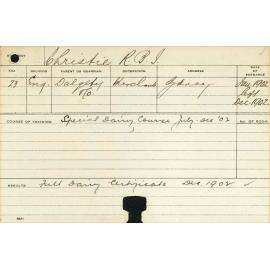 Christie R. B. I.
AGE RELIGION PARENT OR GUARDIAN OCCUPATION ADDRESS DATE OF ENTRANCE
23 Eng. Dalgety Merchants Sydney Jan 1902
P/O. Sept
Dec 1902
COURSE OF TRAINING Special Dairy Course July - Dec '02 NO. OF ROOM
RESULTS Full Dairy Certificate Dec 1902 ✓